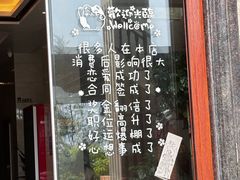 歡迎光臨
Wellcome
很多人在本店
消费后影响很大
恋爱成功了
合同签成了
奖金翻倍了
职位高升了
好运爆棚了
心想事成了